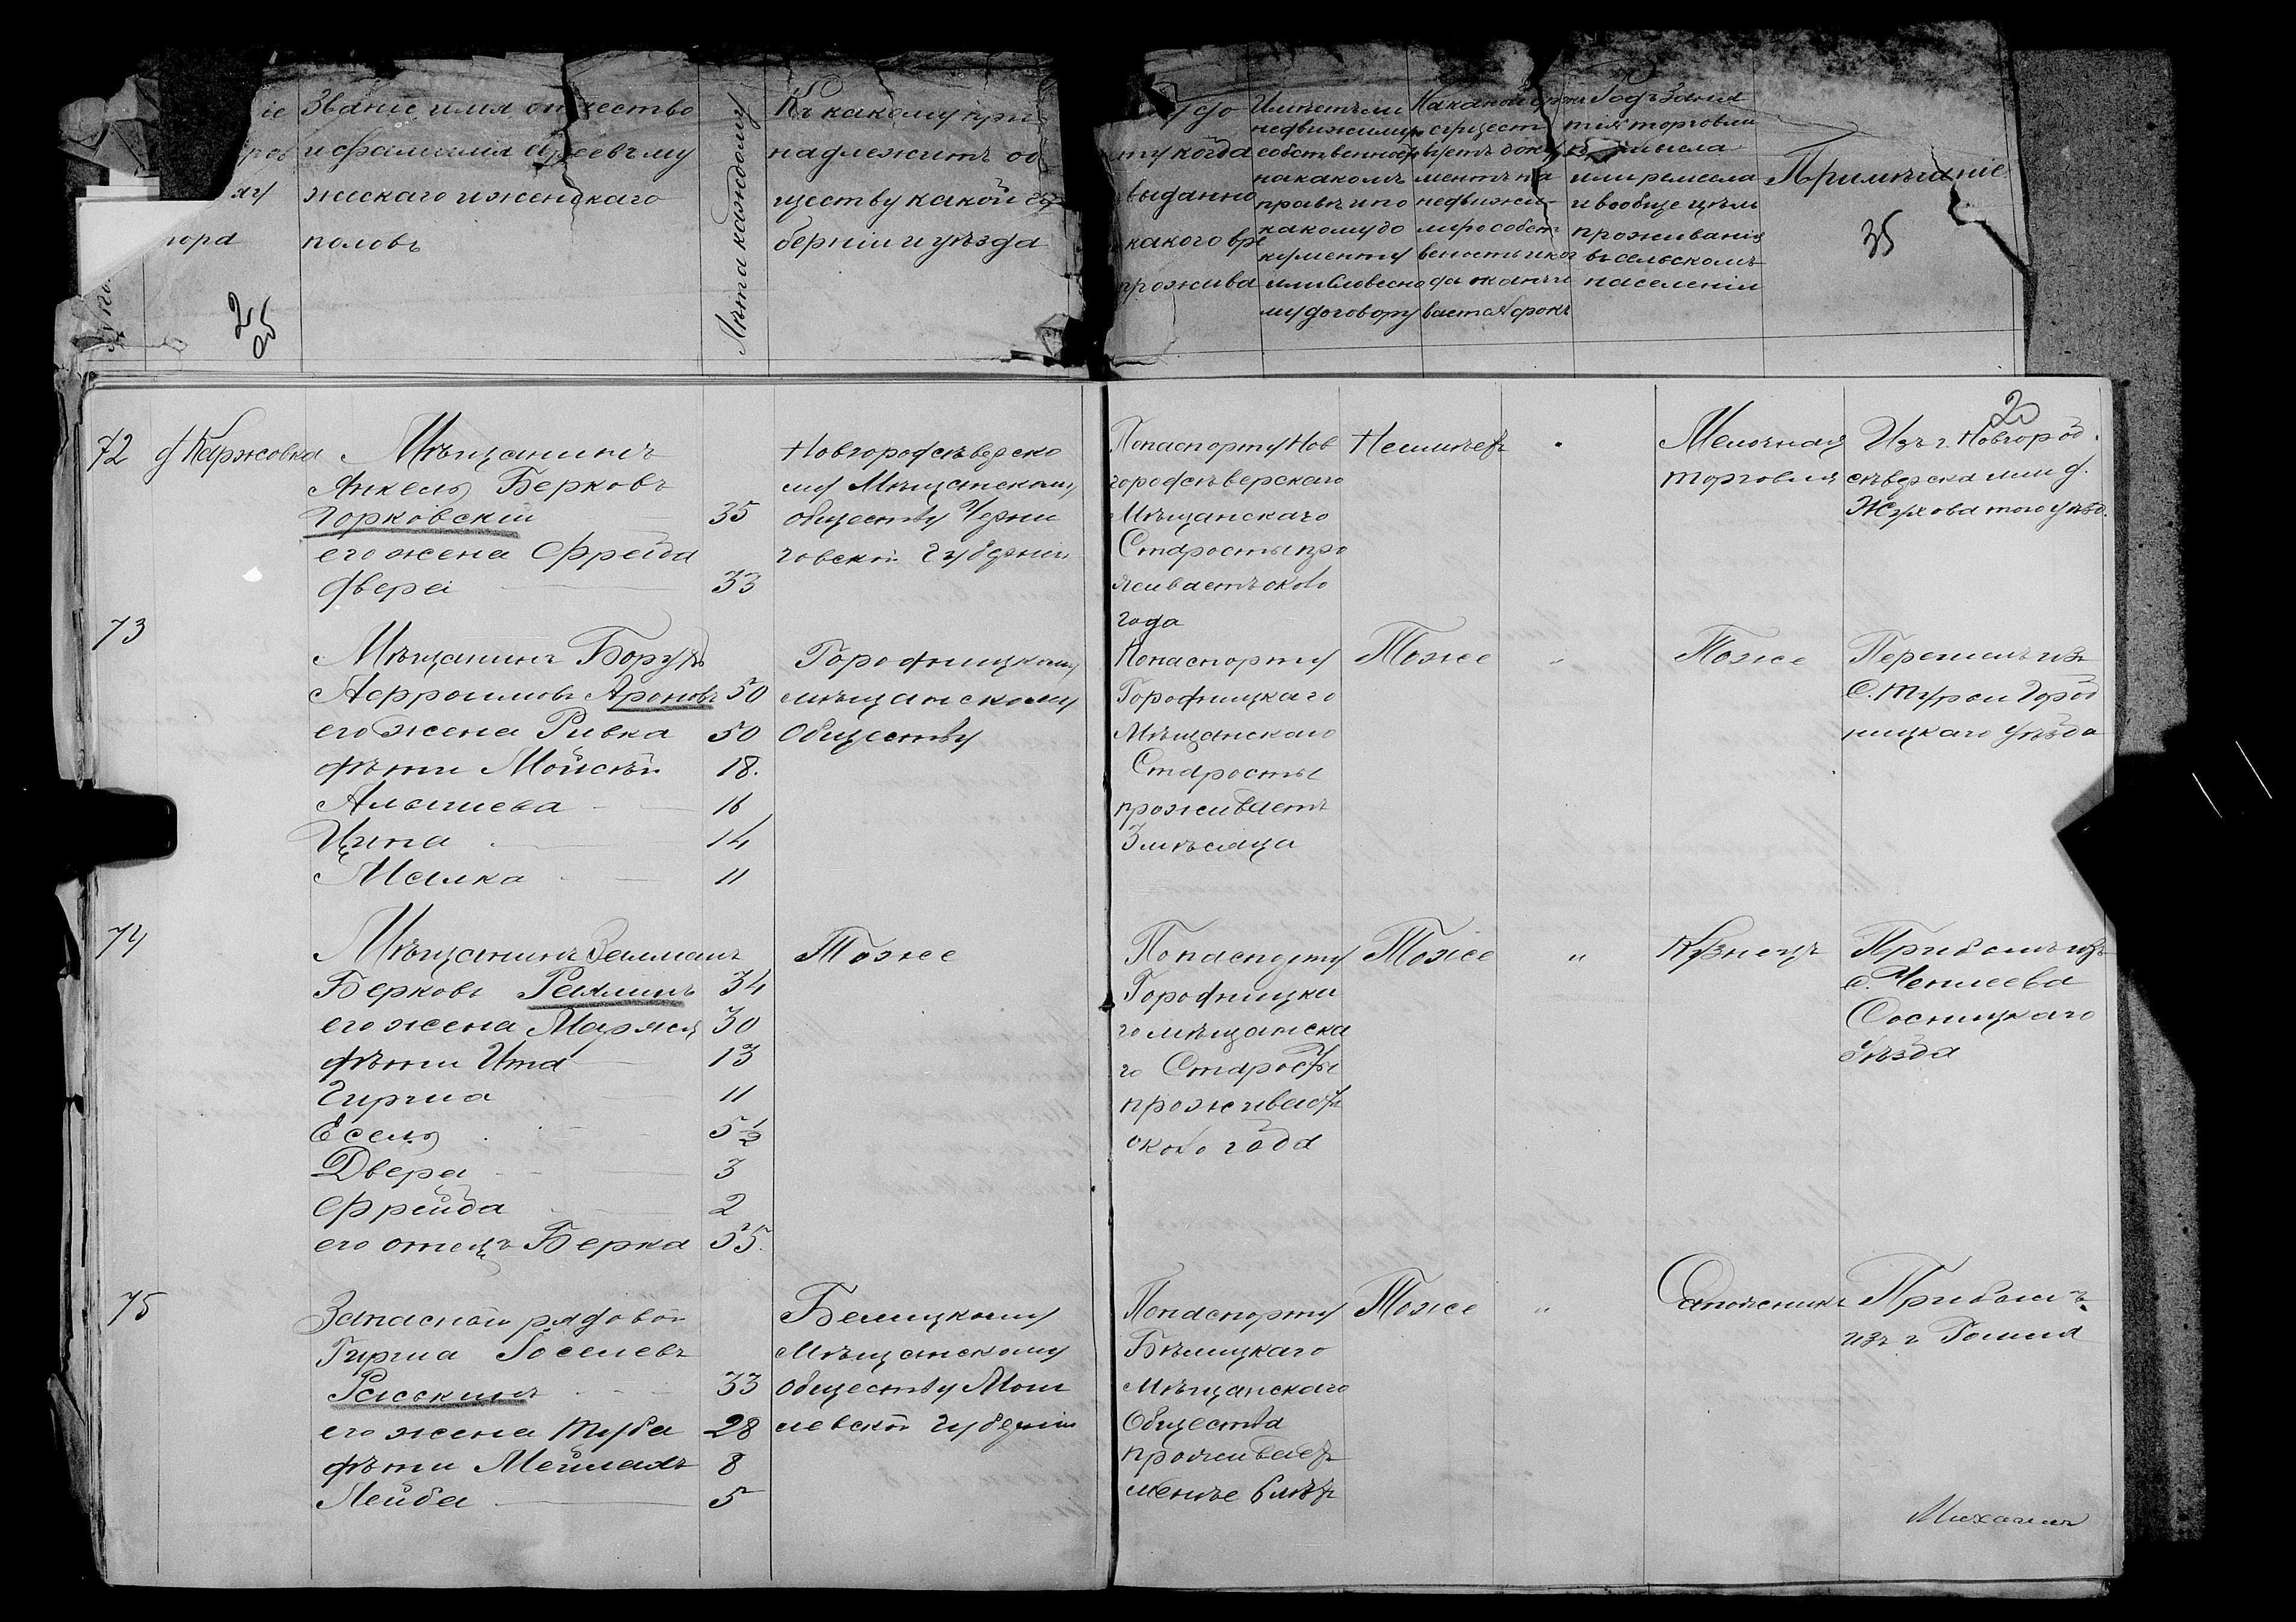 Званіе имя отчество
и фамилія евреевъ му
жескаго и женскаго
половъ
Лѣта каждому
Къ какому при
надлежитъ об
ществу какой гу
берніи и уѣзда
выданно
какого вре
прожива
Имѣетъ ли
недвижимую
собственность
на какомъ
правѣ и по
какому до
кументу
или словесно
му договору
недвижи
Родъ заня
тія торговли
или ремесла
и вообще цѣль
проживанія
въ сельскомъ
населеніи
Примѣчаніе
35
25
20
72
д Каржовка
Мѣщанинъ
Анкель Берковъ
Горковскій 35
его жена Фрейда
Двера 33
Новгородсѣверско
му Мѣщанскому
обществу Черни
говской Губерніи
По паспорту Нов
городсѣверскаго
Мѣщанскаго
Старосты про
живаетъ около
года
Неимѣетъ
Мелочная
торговля
Изъ г. Новгород
сѣверска или д.
Жухова того уѣзд.
73
Мѣщанинъ Борухъ
Афроимовъ Ароновъ 50
его жена Ривка 50
дѣти Мойсѣй 18.
Альшева 16
Ципа 14
Малка 11
Городницкому
мѣщанскому
Обществу
По паспорту
Городницкаго
Мѣщанскаго
Старосты
проживаетъ
3 мѣсяца
Тоже
Тоже
Перешелъ изъ
С. Турьи Город
ницкаго Уѣзда
74
Мѣщанинъ Залманъ
Берковъ Рахлинъ 34
его жена Маряся 30
дѣти Ита 13
Гиршa 11
Есель 5½
Двера 3
Фрейда 2
его отецъ Берка 55.
Тоже
По паспорту
Городницка
го мѣщанска
го Старосты
проживаетъ
около года
Тоже
"
Кузнецъ
Прибылъ изъ
с. Чеплеева
Сосницкаго
Уѣзда
75
Запасной рядовой
Гирша Іоселевъ
Раскинъ 33
его жена Туба 28
дѣти Меймахъ 8
Лейба 5
Белицкому
Мѣщанскому
Обществу Моги
левской Губерніи
По паспорту
Бѣлицкаго
Мѣщанскаго
Общества
проживаетъ
менѣе 6 мѣс
Тоже
"
Сапожникъ
Прибылъ
изъ г Гомля
Михаилъ